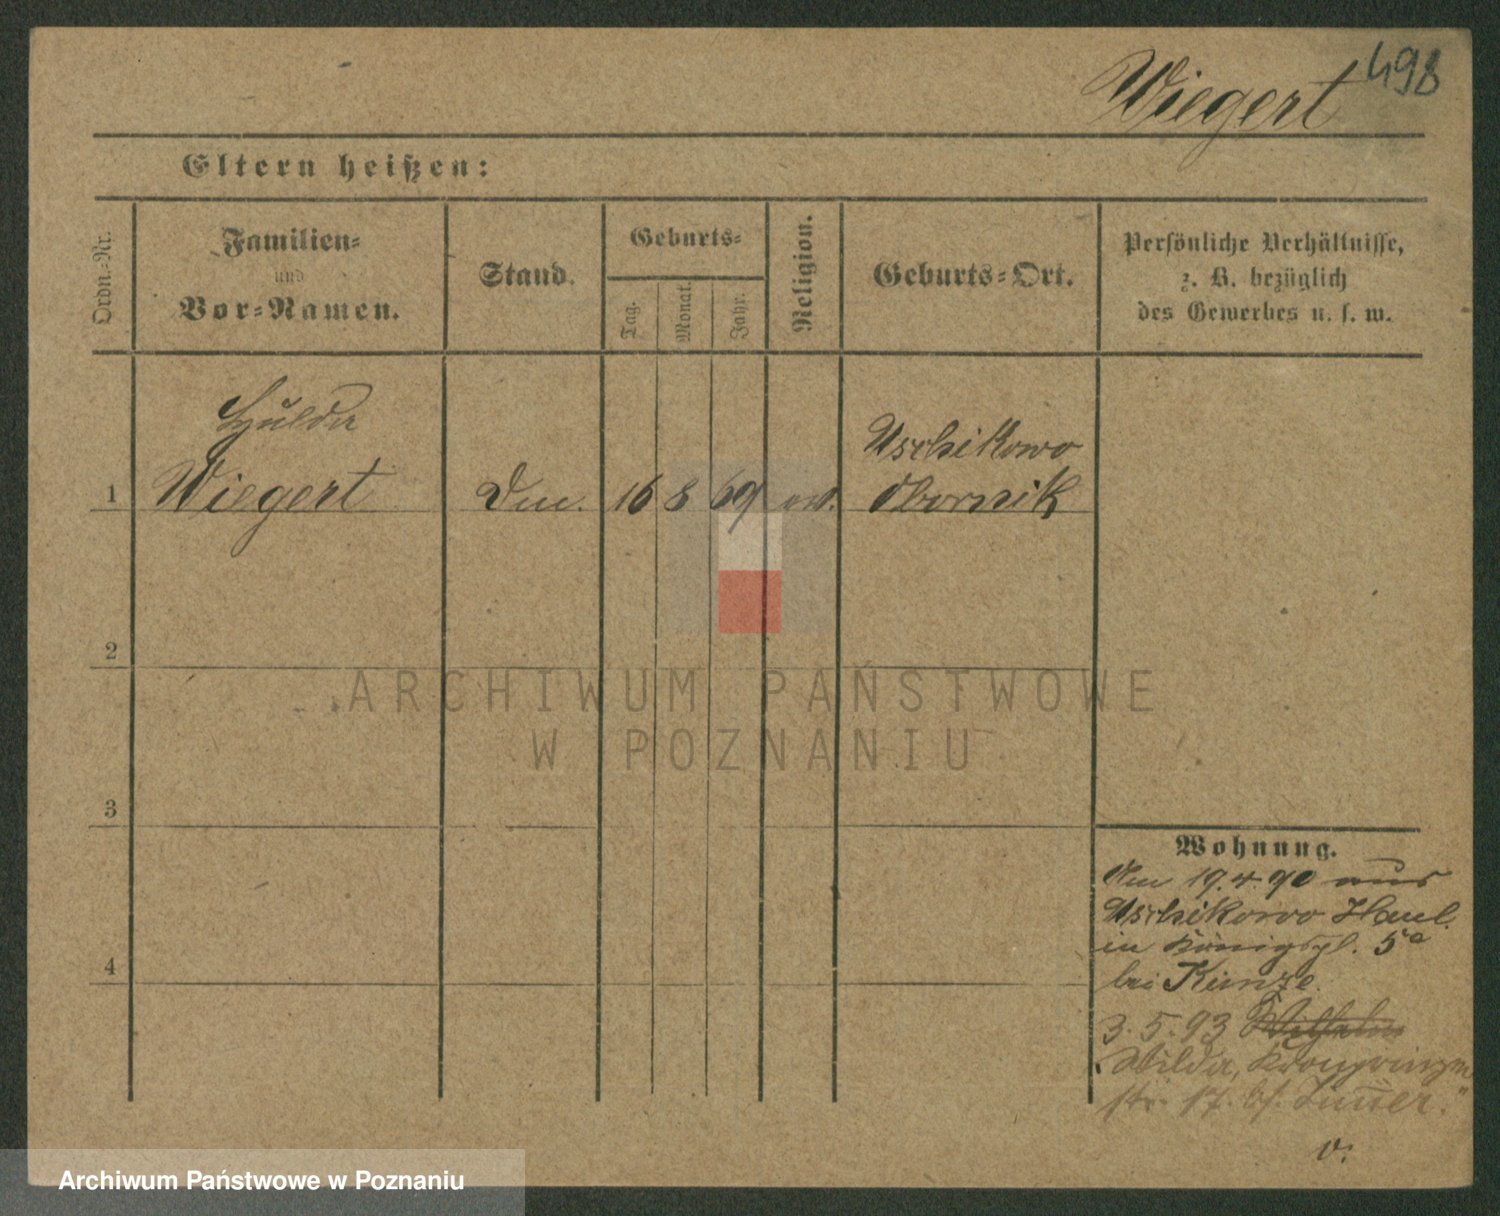 Wiegert 498
Eltern heißen:
Ordn.=Nr.
Familien=
und
Vor=Namen.
Stand.
Geburts=
Tag.
Monat.
Jahr.
Religion.
Geburts=Ort.
Persönliche Verhältnisse,
z. B. bezüglich
des Gewerbes u. s. w.
Hulda
Wiegert
Uschikowo
1 16 8 69 ev. Obornik
2
ARCHIWUM PAŃSTWOWE
W POZNANIU
3
4
Wohnung.
19.4.90 aus
Uschikowo Haul.
in Königspl. 5a
bei Kunze.
3.5.93 Wilhelm
Wilda, Kronprinzen
str. 17. b/.
v.
Archiwum Państwowe w Poznaniu